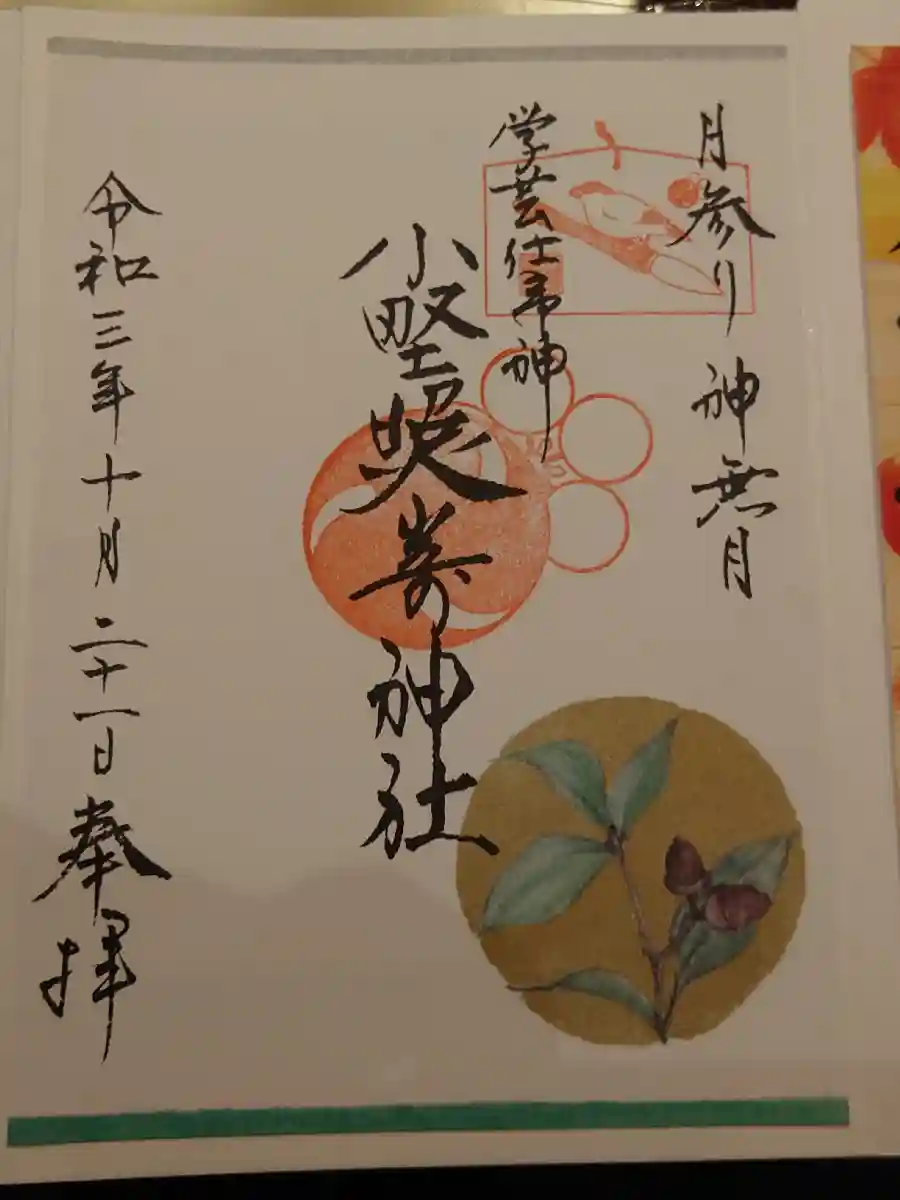 月参り 神無月
学芸仕事神
小野照嵜神社
令和三年十月二十一日奉拝